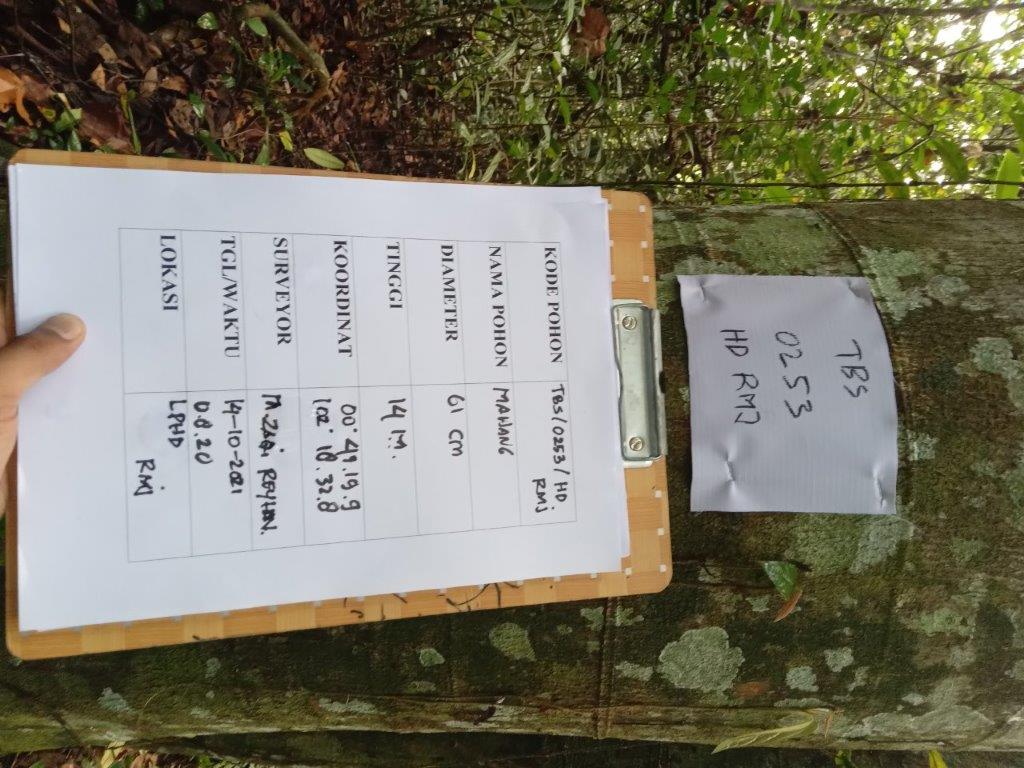 TBS
0253
HD RMJ
KODE POHON TBS/0253/HD.
RMJ
NAMA POHON MAHANG
DIAMETER 61 CM
TINGGI 14 M.
KOORDINAT 00° 49.19.9
102° 18.32.8
SURVEYOR M.ZAQi REYHAN.
TGL/WAKTU 14-10-2021
08.20
LOKASI LPHD
RMJ